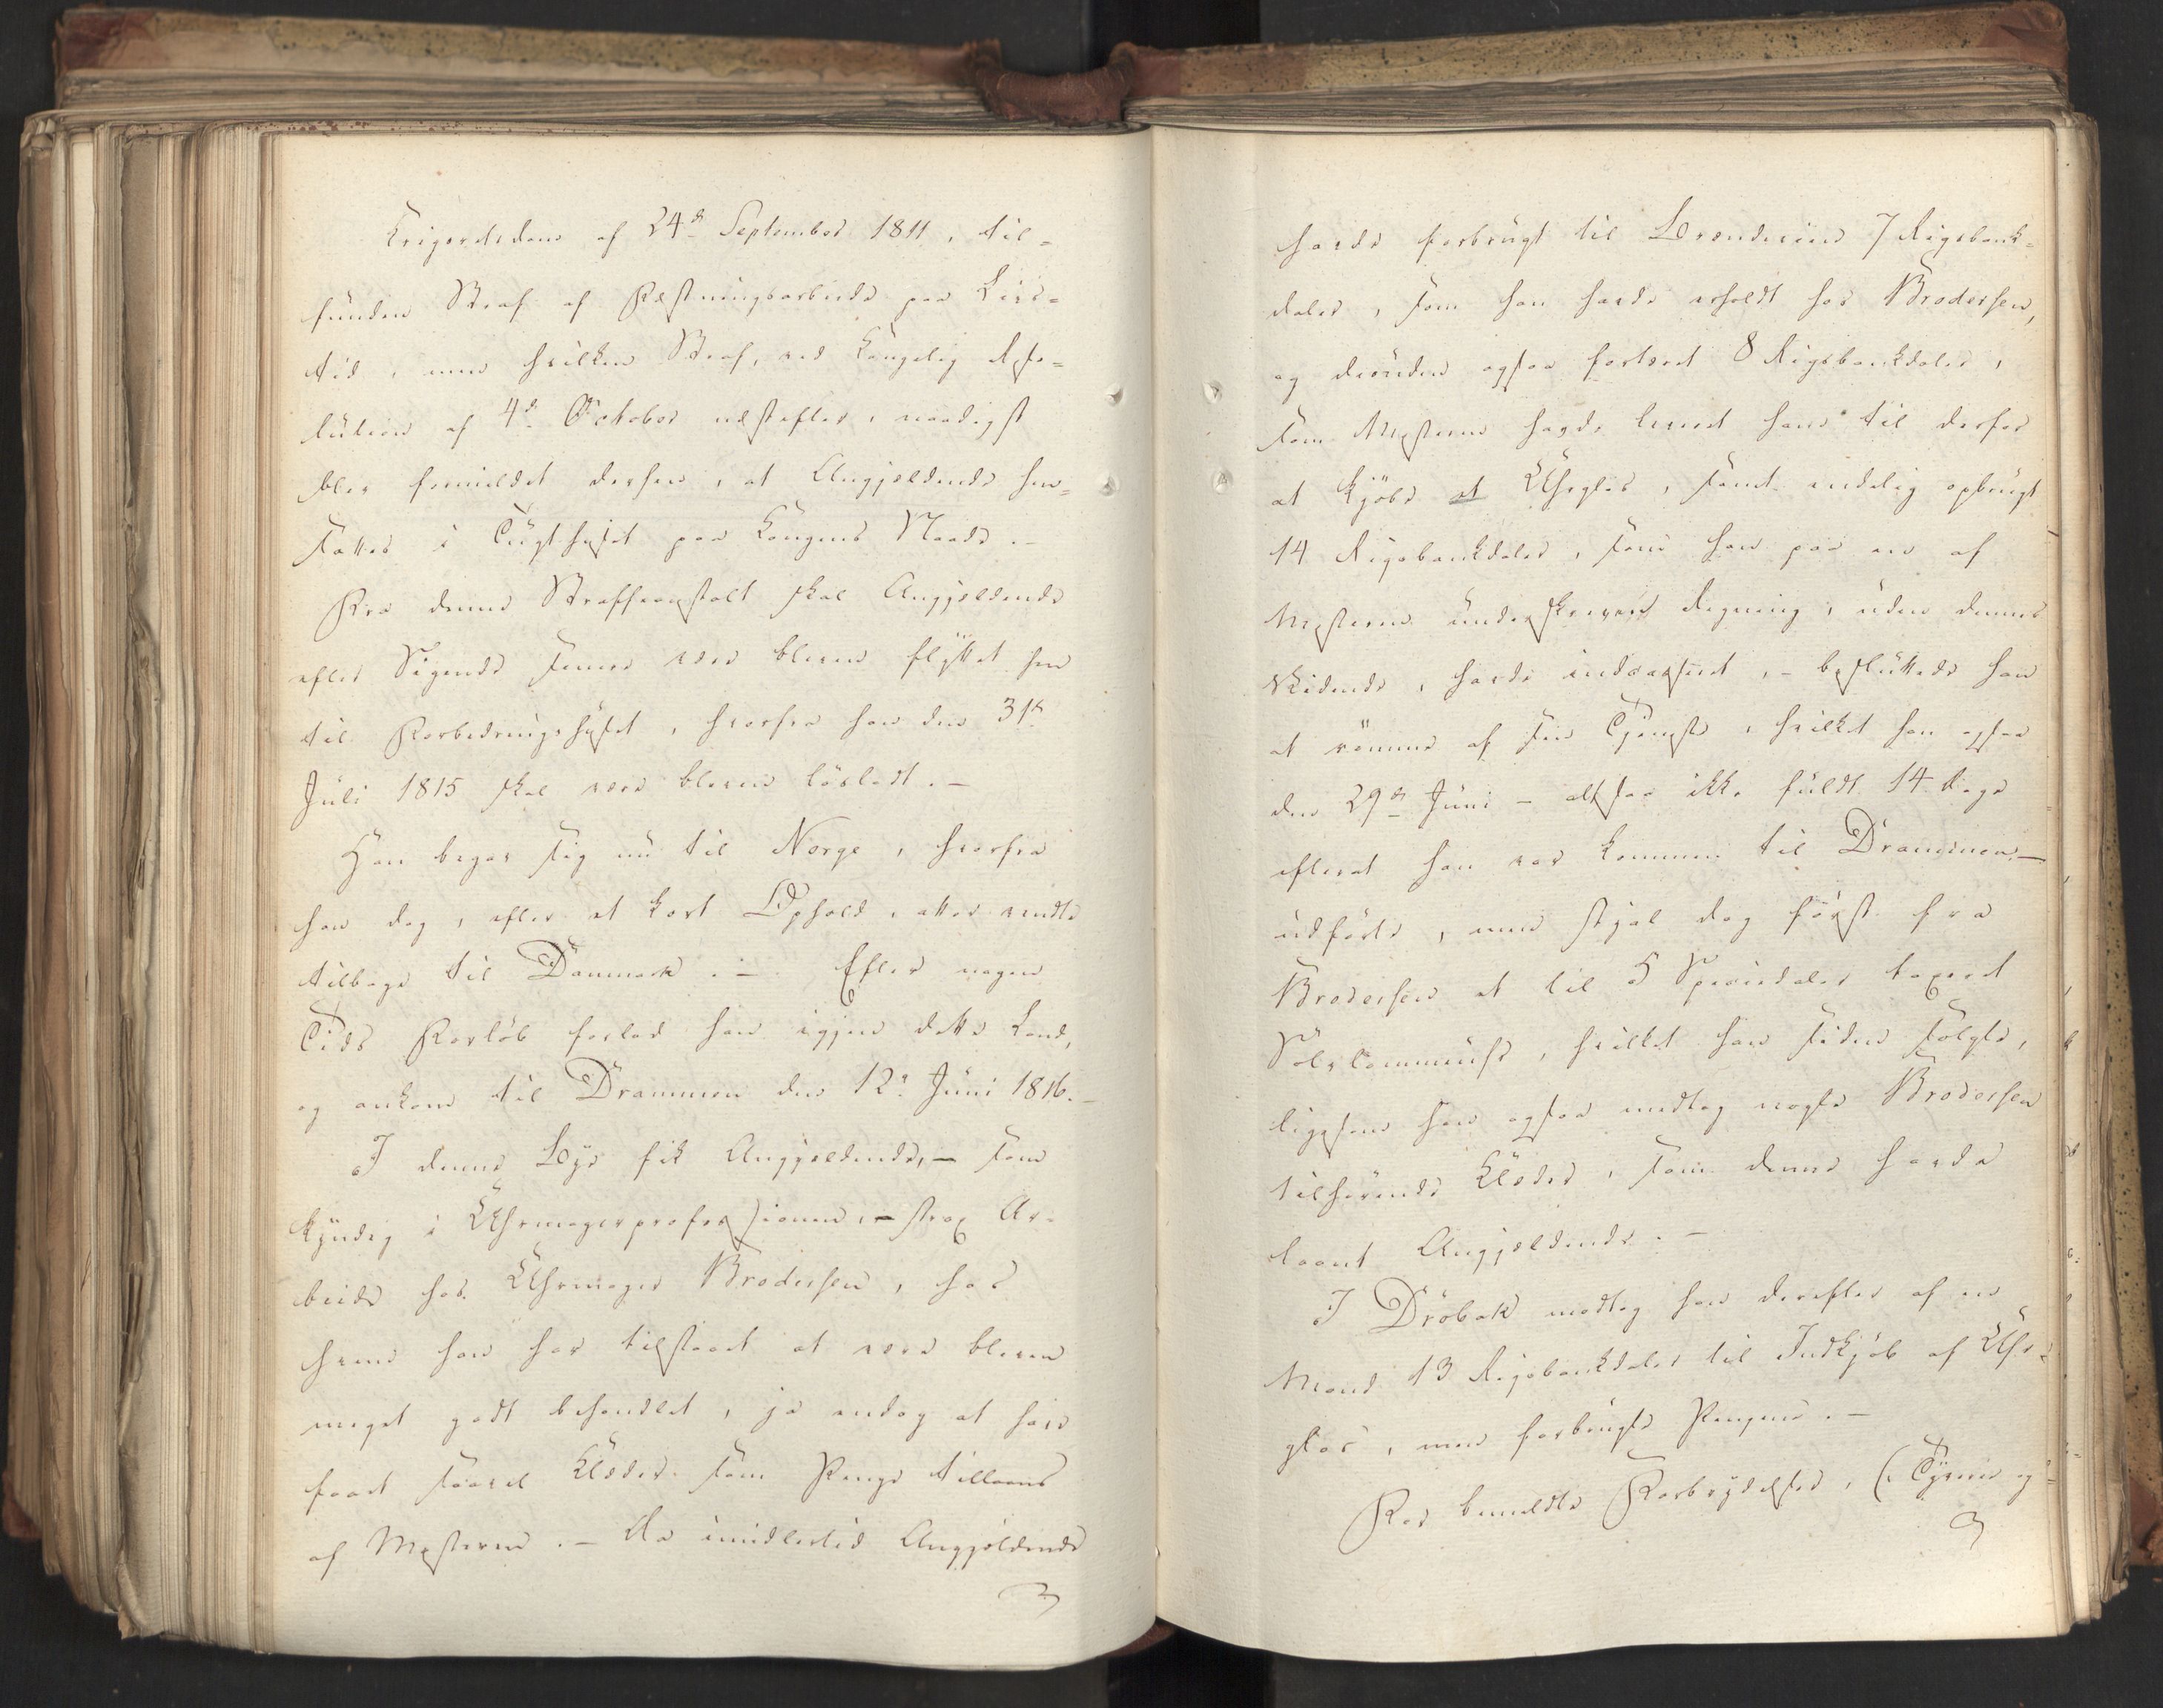 Krigsretsdom af 24de September 1811, til=
funden Straf af Fæstningsarbeide paa Livs=
tid, men hvilken Straf, ved Kongelig Reso=
lution af 4de October næstefter, naadigst
blev formildet derhen, at Angjeldende hen=
sættes i Tugthuset paa Kongens Naade. -
Fra denne Straffeanstalt skal Angjeldende
efter Sigende senere være bleven flyttet hen
til Forbedringshuset, hvorfra han den 31te
Juli 1815 skal være bleven løsladt. -
Han begav sig nu til Norge, hvorfra
han dog, efter et kort Ophold, atter vendte
tilbage til Danmark. - Efter nogen
Tids Forløb forlod han igjen dette Land,
og ankom til Drammen den 12e Juni 1816. -
I denne Bye fik Angjeldende, - som
kyndig i Uhrmagerprofessionen, - strax Ar=
beide hos Uhrmager Brodersen, hos
hvem han har tilstaaet at være bleven
meget godt behandlet, ja endog at have
faaet saavel Klæder som Penge tillaans
af Mesteren. - Da imidlertid Angjeldende
havde forbrugt til Brændeviin 7 Rigsbank=
daler, som han havde erholdt hos Brodersen,
og desuden ogsaa fortæret 8 Rigsbankdaler,
som Mesteren havde leveret ham til derfor
at kjøbe et Uhrglas, samt endelig opbrugt
14 Rigsbankdaler, som han paa en af
Mesteren underskreven Regning, uden dennes
Vidende, havde indcasseret, - besluttede han
at rømme af sin Tjeneste, hvilket han ogsaa
den 29de Juni - altsaa ikke fuldt 14 Dage
efterat han var kommen til Drammen -
udførte, men stjal dog først fra
Brodersen et til 5 Speciedaler taxeret
Sølvlommeuhr, hvilket han siden solgte,
ligesom han ogsaa medtog nogle Brodersen
tilhørende Klæder, som denne havde
laant Angjeldende. -
I Drøbak modtog han derefter af en
Mand 13 Rigsbankdaler til Indkjøb af Uhr=
glas, men forbrugte Pengene. -
For bemeldte Forbrydelser, (Tyverie og